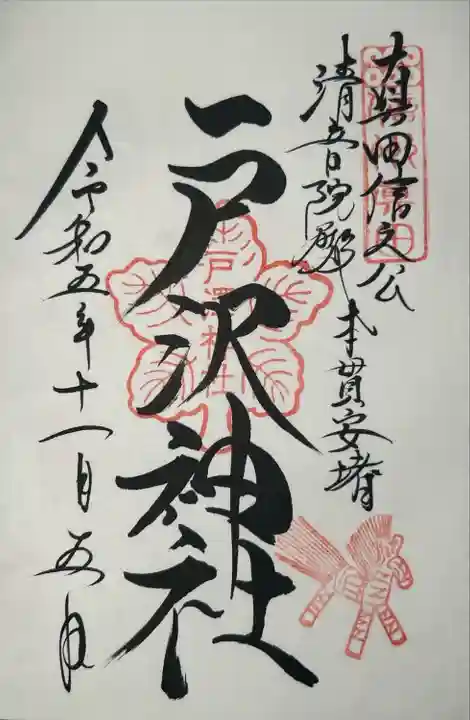 真田信之公
清音院殿
本貫安堵
戸沢神社
戸澤神社
令和五年十一月五日